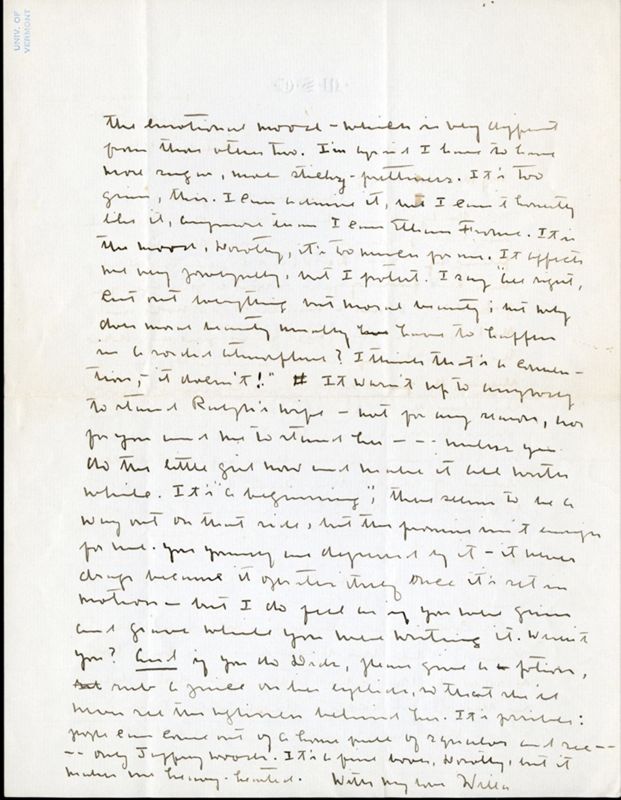 UNIV. OF
VERMONT
the emotional mood - which is very different
from those other two. I'm afraid I have to have
more sugar, more sticky-prettiness. It's too
grim, this. I can admire it, but I can't honestly
like it, anymore than I can Ethan Frome. It is
the mood, Dorothy, it's too much for me. It affects
me very powerfully, but I protest. I say "all right,
cut out everything but moral beauty; but why
does moral beauty usually have to happen
in a sordid atmosphere? I think that's a conven-
tion, - it doesn't!" # It wasn't up to anybody
to stand Ralph's wife - not for any reason, nor
for you and me to stand her --- unless you
do the little girl now and make it all worth
while. It is "a beginning"; there seems to be a
way out on that side, but the promise isn't enough
for me. You yourself are depressed by it - it never
drags because it operates itself once it's set in
motion - but I do feel as if you were grim
and grave while you were writing it. Weren't
you? And if you do Dids, please give a potion,
rub a juice on her eyelids, so that she'll
never see the ugliness behind her. It's possible:
people can come out of a home full of squalor and see --
-- only Jaffrey woods. It's a fine book, Dorothy, but it
makes me heavy-hearted. With my love Willa